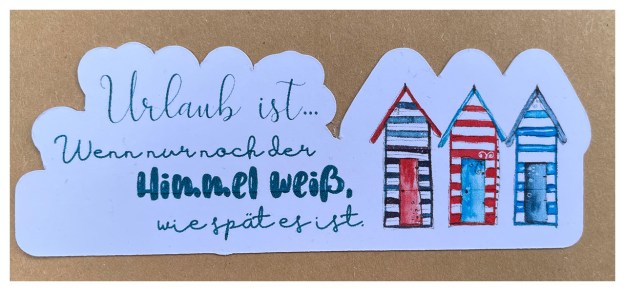 Urlaub ist...
Wenn nur noch der
Himmel weiß,
wie spät es ist.